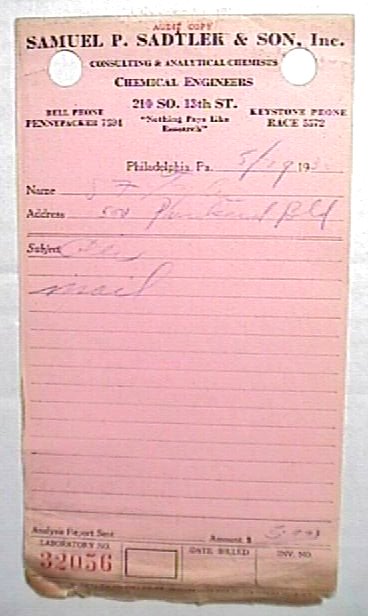 AUDIT COPY
SAMUEL P. SADTLER & SON, Inc.
CONSULTING & ANALYTICAL CHEMISTS
CHEMICAL ENGINEERS
210 SO. 13th ST.
BELL PHONE
PENNYPACKER 7594
"Nothing Pays Like
Research"
KEYSTONE PHONE
RACE 5572
Philadelphia, Pa. 5/19 193
Name
Address 500 Bld
Subject
mail
Analysis Report Sent
Amount $
LABORATORY NO.
32056
DATE BILLED
INV. NO.